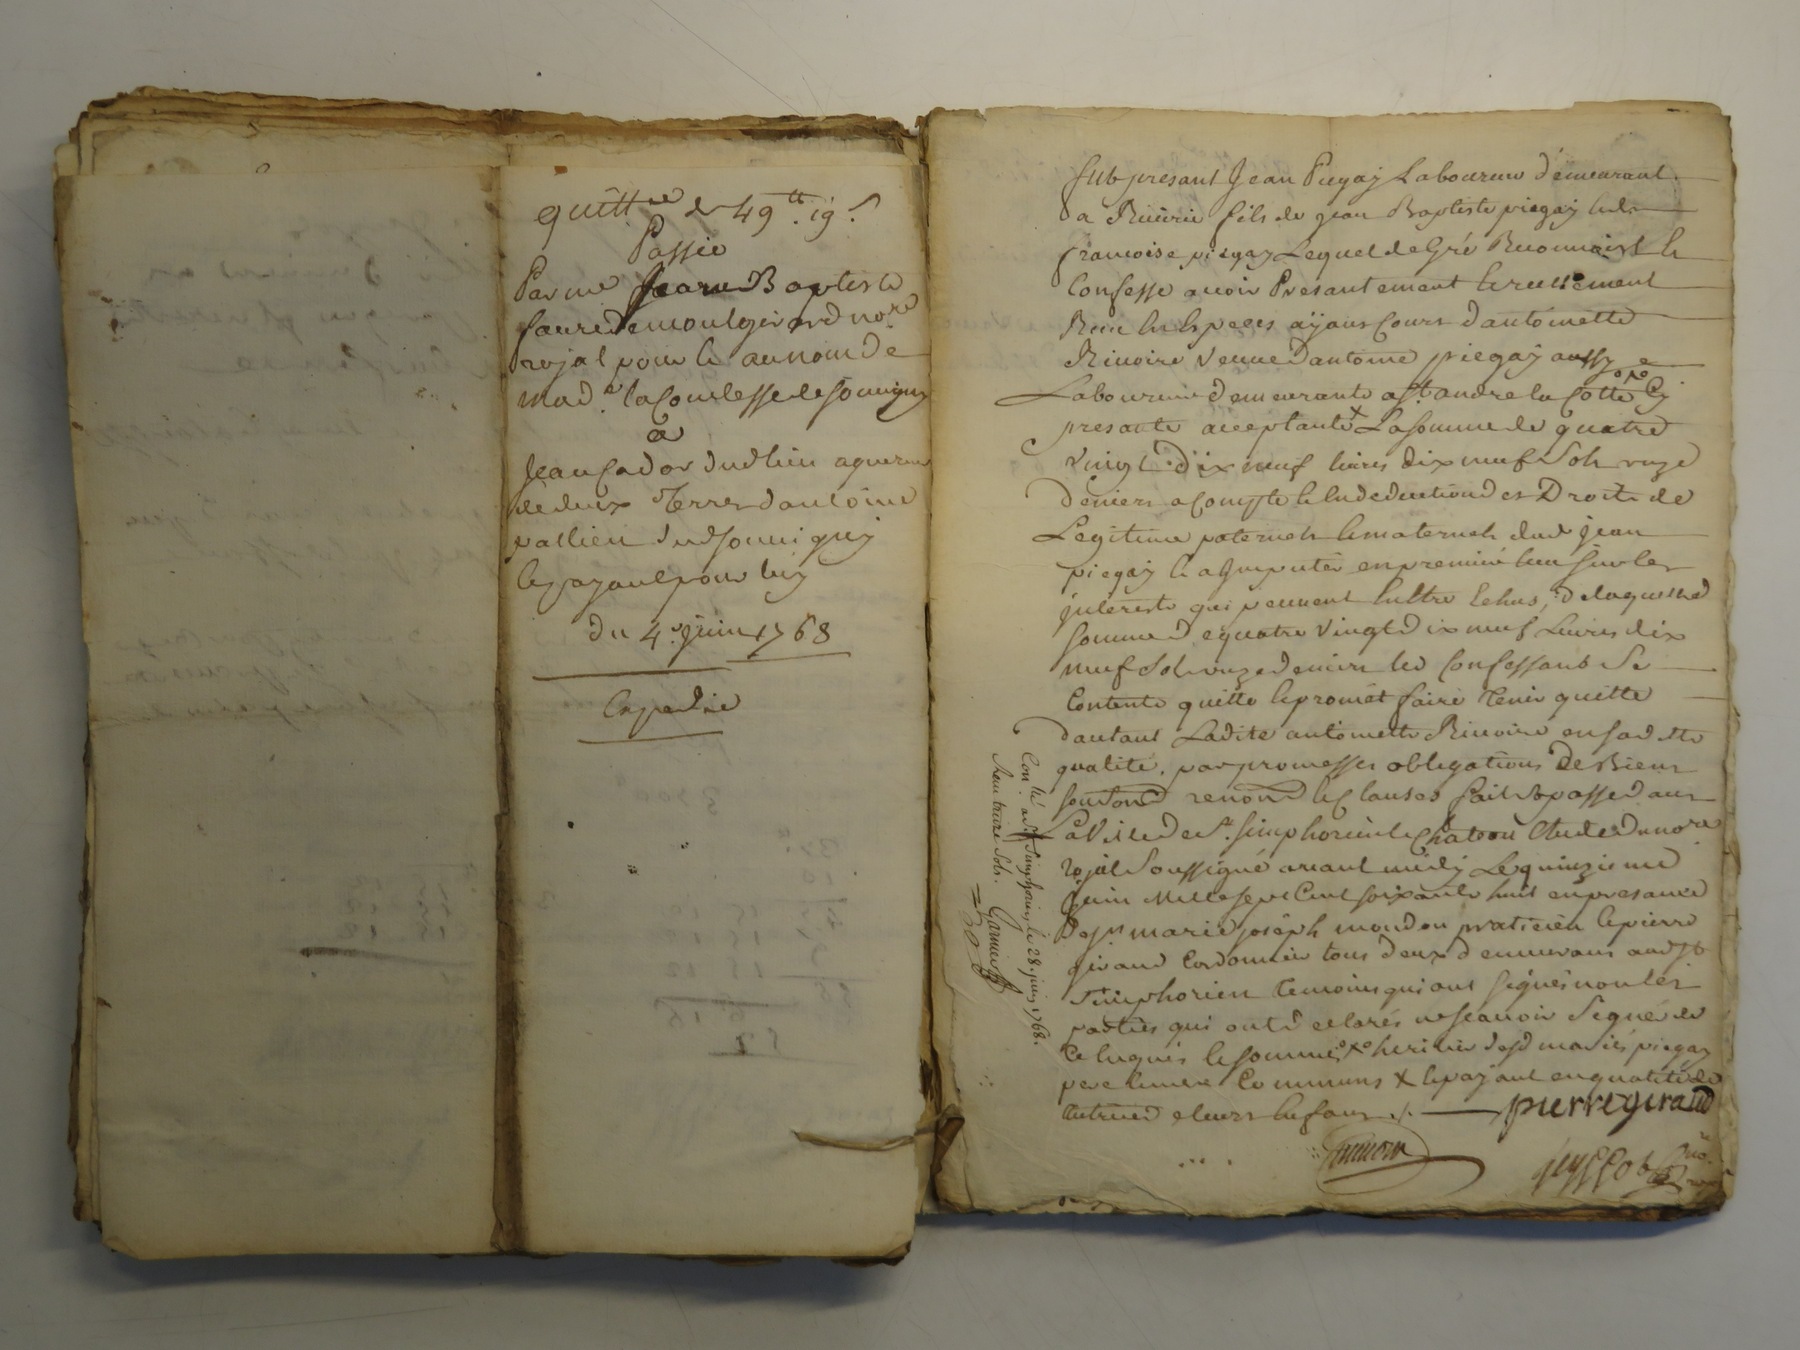 quitt.ce de 49.tt 19.s
Passée
Par me Jean Baptiste
faure de montgirard no.re
rojal pour et au nom de
mad.e la Comtesse de souvigny
a
Jean Cador dudt lieu aquereur
de deux Terres d'antoine
vallieu dudt souvigny
le payant pour luy
du 4.e juin 1768
Expedié
fut present Jean Piegay Laboureur demeurant
a Riverie fils de jean Baptiste piegay et de
francoise piegay Lequel de Gré Reconnoist et
Confesse avoir Presentement et reellement
Receu en Especes ayans Cours d'antoinette
Rivoire veuve d'antoine piegay aussy
Laboureur demeurante a st. andre la Cotte icy
presante acceptante x La somme de quatre
vingt dix neuf livres dix neuf sols onze
deniers a Compte et en deduction des Droits de
Legitime paternels et maternels dud jean
piegay et a Imputer en premier lieu sur les
interests qui peuvent Estre Echus, de laquelle
somme de quatre vingt dix neuf Livres dix
neuf sols onze deniers led Confessant Se
Contente quitte et promet faire tenir quitte
dautant Ladite antoinette Rivoire en sad.tte
qualité, par promesses obligations De Biens
renond et Clauses fait et passé dans
La Ville de St. simphorien le Chateau Etude du no.re
rojal Soussigné avant midy Le quinzieme
Juin Mil Sept Cent soixante huit en presance
De sr. marie joseph moudon praticien et pierre
giraud Cordonnier tous deux demeurans audt st
simphorien temoins qui ont signés non les
parties qui ont declarés ne scavoir Signer de
Ce Enquis et sommés x heritier desd mariés piegay
pere et mere Communs x et payant en qualité de
tutrice de leurs Enfans ./. pierre giraud
Con.lé a st Simphorien le 28. juin 1768.
Receu treize sols. Garnier